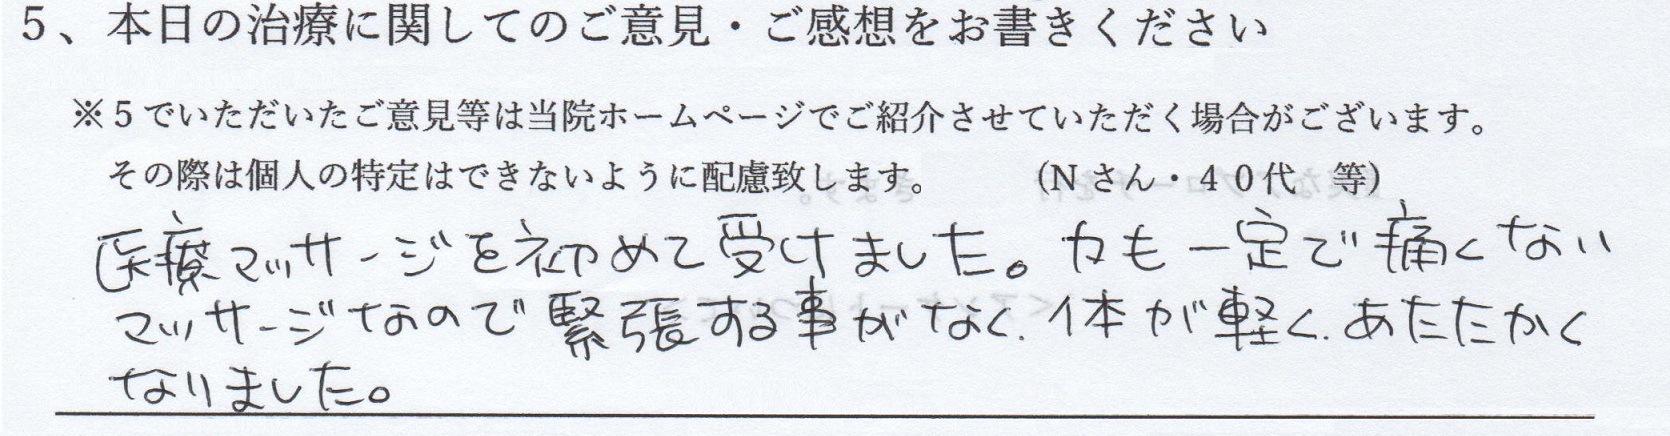 5、本日の治療に関してのご意見・ご感想をお書きください
※5でいただいたご意見等は当院ホームページでご紹介させていただく場合がございます。
その際は個人の特定はできないように配慮致します。　　（Nさん・40代　等）
医療マッサージを初めて受けました。力も一定で痛くない
マッサージなので緊張する事がなく、体が軽く、あたたかく
なりました。